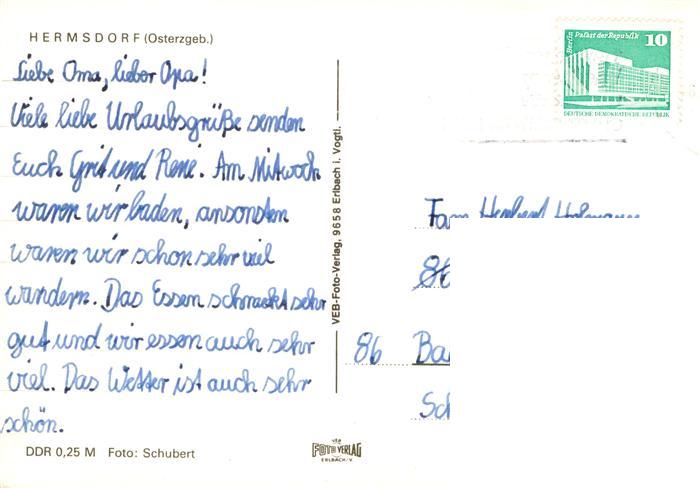 HERMSDORF (Osterzgeb.)
Liebe Oma, lieber Opa!
Viele liebe Urlaubsgrüße senden
Euch Grit und René. Am Mittwoch
waren wir baden, ansonsten
waren wir schon sehr viel
wandern. Das Essen schmeckt sehr
gut und wir essen auch sehr
viel. Das Wetter ist auch sehr
schön.
DDR 0,25 M Foto: Schubert
VEB-Foto-Verlag, 9658 Erlbach i. Vogtl.
VEB
FOTO VERLAG
ERLBACH/V.
Berlin Palast der Republik 10
DEUTSCHE DEMOKRATISCHE REPUBLIK
Fam. Herbert
86
86 Ba
Sch